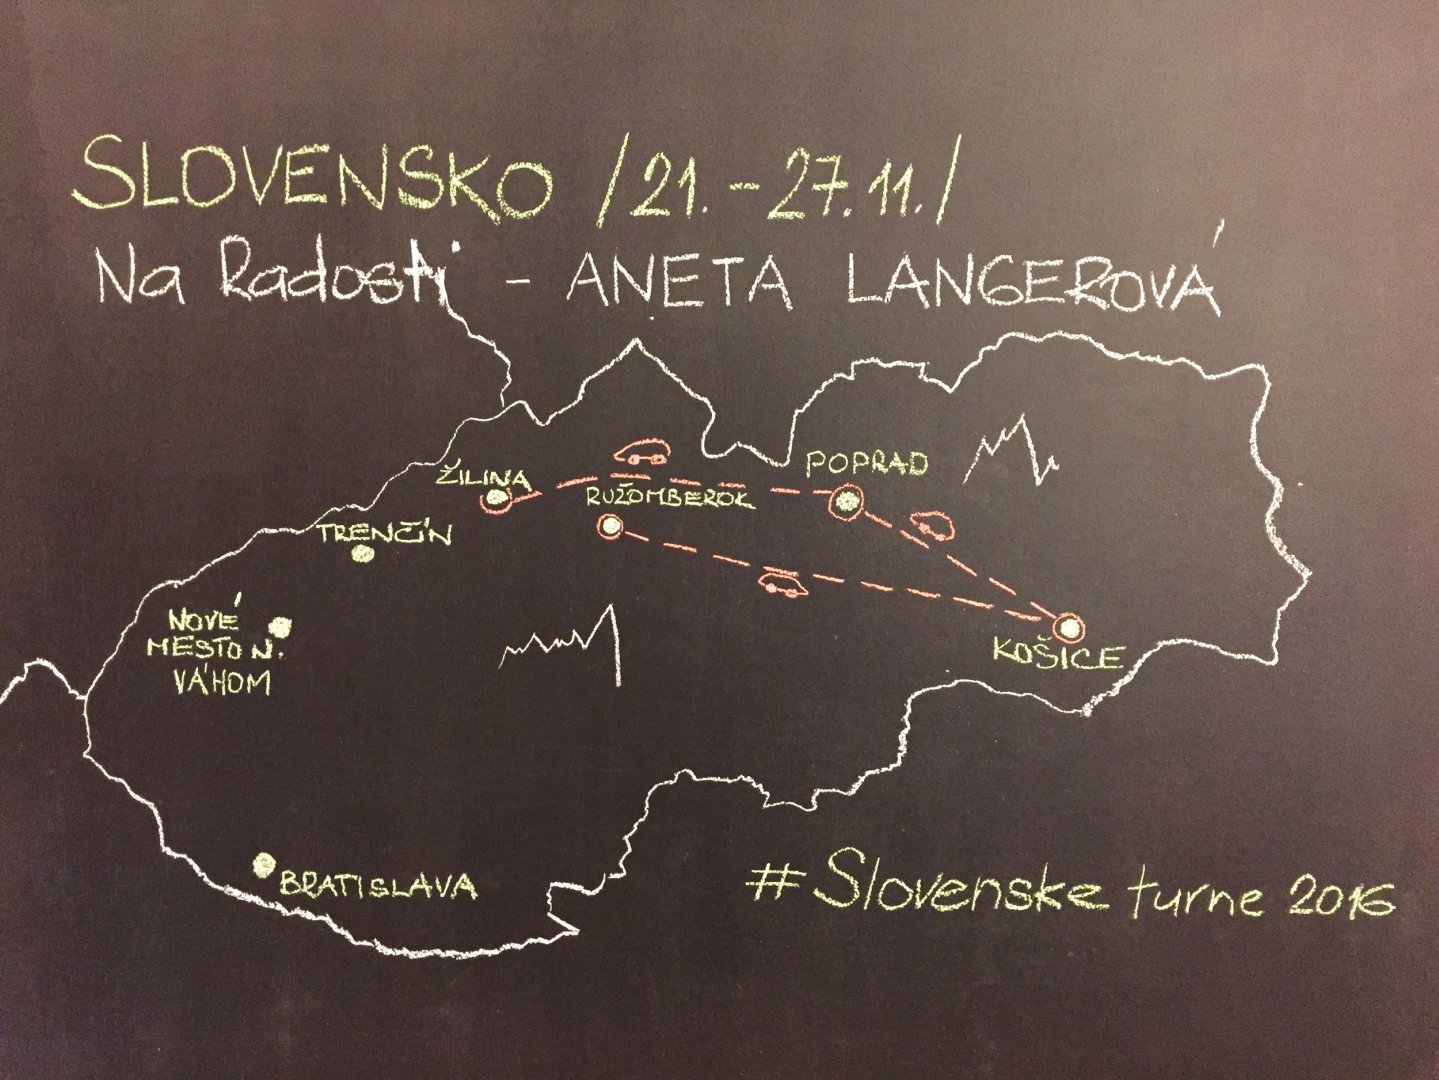 SLOVENSKO /21.-27.11./
Na Radosti - ANETA LANGEROVÁ
POPRAD
ŽILINA
RUŽOMBEROK
TRENČÍN
NOVÉ
MESTO N.
VÁHOM
KOŠICE
BRATISLAVA
#Slovenske turne 2016